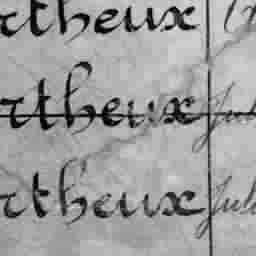 rtheux
rtheux Jul
rtheux Jul